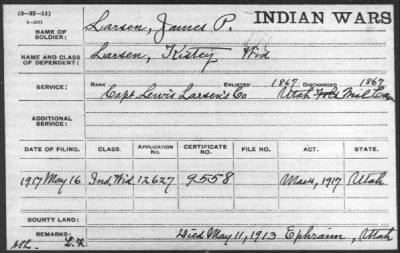 (3-III-11)
INDIAN WARS
NAME OF SOLDIER: Larsen, James P.
NAME AND CLASS OF DEPENDENT: Larsen, Kistey Wid
SERVICE: RANK ENLISTED 1867 DISCHARGED 1867
Capt Lewis Larsen's Co Utah Mil Cav
ADDITIONAL SERVICE:
DATE OF FILING. CLASS. APPLICATION No. CERTIFICATE NO. FILE NO. ACT. STATE.
1917 May 16 Ind. Wid. 12627 9558 Mar 4, 1917 Utah
BOUNTY LAND:
REMARKS: Died May 11, 1913 Ephraim, Utah